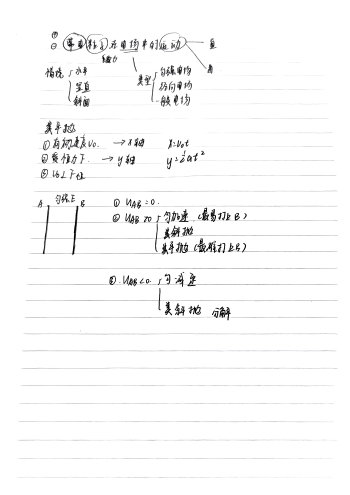 带电粒子在电场中的运动 直
曲
情境 水平 竖直 斜面
类型 匀强电场 径向电场
类平抛
① 有初速度V₀. → x轴 x=V₀t
② 受恒力F. → y轴 y=½at²
③ V₀⊥F恒
A 匀强E B
① UAB=0.
② UAB>0 匀加速 (最易打上B)
类斜抛
类平抛 (最难打上B)
③ UAB<0. 匀减速
类斜抛 分解